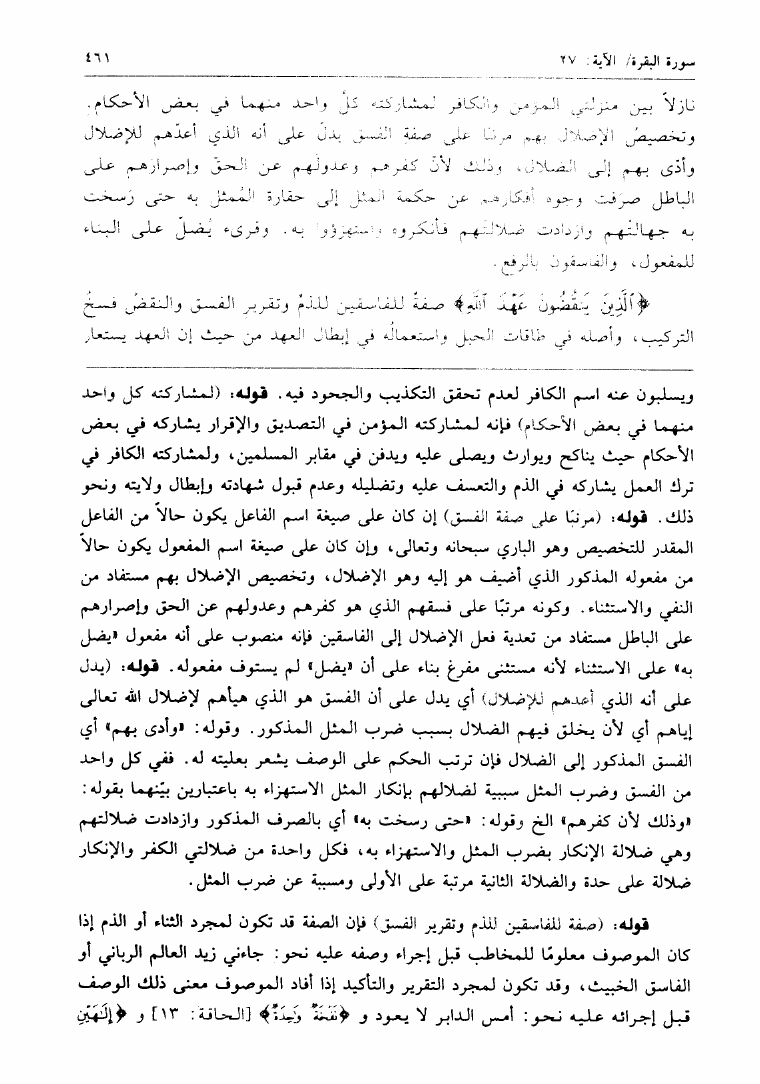 سورة البقرة/ الآية: ٢٧
٤٦١
نازلاً بين منزلتي المؤمن والكافر لمشاركته كلّ واحد منهما في بعض الأحكام.
وتخصيصُ الإضلال بهم مرتبًا على صفة الفسق يدلّ على أنه الذي أعدّهم للإضلال
وأدّى بهم إلى الضلال، وذلك لأنّ كفرهم وعدولَهم عن الحقّ وإصرارهم على
الباطل صرَفت وجوه أفكارهم عن حكمة المثل إلى حقارة المُمثل به حتى رَسخت
به جهالتُهم وازدادت ضلالتُهم فأنكروه واستهزؤوا به. وقرىء يُضلّ على البناء
للمفعول، والفاسقون بالرفع.
﴿ٱلَّذِينَ يَنقُضُونَ عَهْدَ ٱللَّهِ﴾ صفةٌ للفاسقين للذمّ وتقرير الفسق والنقضُ فسخُ
التركيب، وأصله في طاقات الحبل واستعمالُه في إبطال العهد من حيث إن العهد يستعار
ويسلبون عنه اسم الكافر لعدم تحقق التكذيب والجحود فيه. قوله: (لمشاركته كل واحد
منهما في بعض الأحكام) فإنه لمشاركته المؤمن في التصديق والإقرار يشاركه في بعض
الأحكام حيث يناكح ويوارث ويصلى عليه ويدفن في مقابر المسلمين، ولمشاركته الكافر في
ترك العمل يشاركه في الذم والتعسف عليه وتضليله وعدم قبول شهادته وإبطال ولايته ونحو
ذلك. قوله: (مرتبًا على صفة الفسق) إن كان على صيغة اسم الفاعل يكون حالاً من الفاعل
المقدر للتخصيص وهو الباري سبحانه وتعالى، وإن كان على صيغة اسم المفعول يكون حالاً
من مفعوله المذكور الذي أضيف هو إليه وهو الإضلال، وتخصيص الإضلال بهم مستفاد من
النفي والاستثناء. وكونه مرتبًا على فسقهم الذي هو كفرهم وعدولهم عن الحق وإصرارهم
على الباطل مستفاد من تعدية فعل الإضلال إلى الفاسقين فإنه منصوب على أنه مفعول «يضل
به» على الاستثناء لأنه مستثنى مفرغ بناء على أن «يضل» لم يستوف مفعوله. قوله: (يدل
على أنه الذي أعدهم للإضلال) أي يدل على أن الفسق هو الذي هيأهم لإضلال الله تعالى
إياهم أي لأن يخلق فيهم الضلال بسبب ضرب المثل المذكور. وقوله: «وأدى بهم» أي
الفسق المذكور إلى الضلال فإن ترتب الحكم على الوصف يشعر بعليته له. ففي كل واحد
من الفسق وضرب المثل سببية لضلالهم بإنكار المثل الاستهزاء به باعتبارين بيّنهما بقوله:
«وذلك لأن كفرهم» الخ وقوله: «حتى رسخت به» أي بالصرف المذكور وازدادت ضلالتهم
وهي ضلالة الإنكار بضرب المثل والاستهزاء به، فكل واحدة من ضلالتي الكفر والإنكار
ضلالة على حدة والضلالة الثانية مرتبة على الأولى ومسببة عن ضرب المثل.
قوله: (صفة للفاسقين للذم وتقرير الفسق) فإن الصفة قد تكون لمجرد الثناء أو الذم إذا
كان الموصوف معلومًا للمخاطب قبل إجراء وصفه عليه نحو: جاءني زيد العالم الرباني أو
الفاسق الخبيث، وقد تكون لمجرد التقرير والتأكيد إذا أفاد الموصوف معنى ذلك الوصف
قبل إجرائه عليه نحو: أمس الدابر لا يعود و ﴿نَفْخَةٌ وَٰحِدَةٌ﴾ [الحاقة: ١٣] و ﴿إِلَٰهَيْنِ